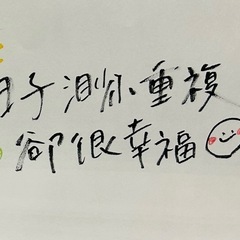 日子重複
卻很幸福